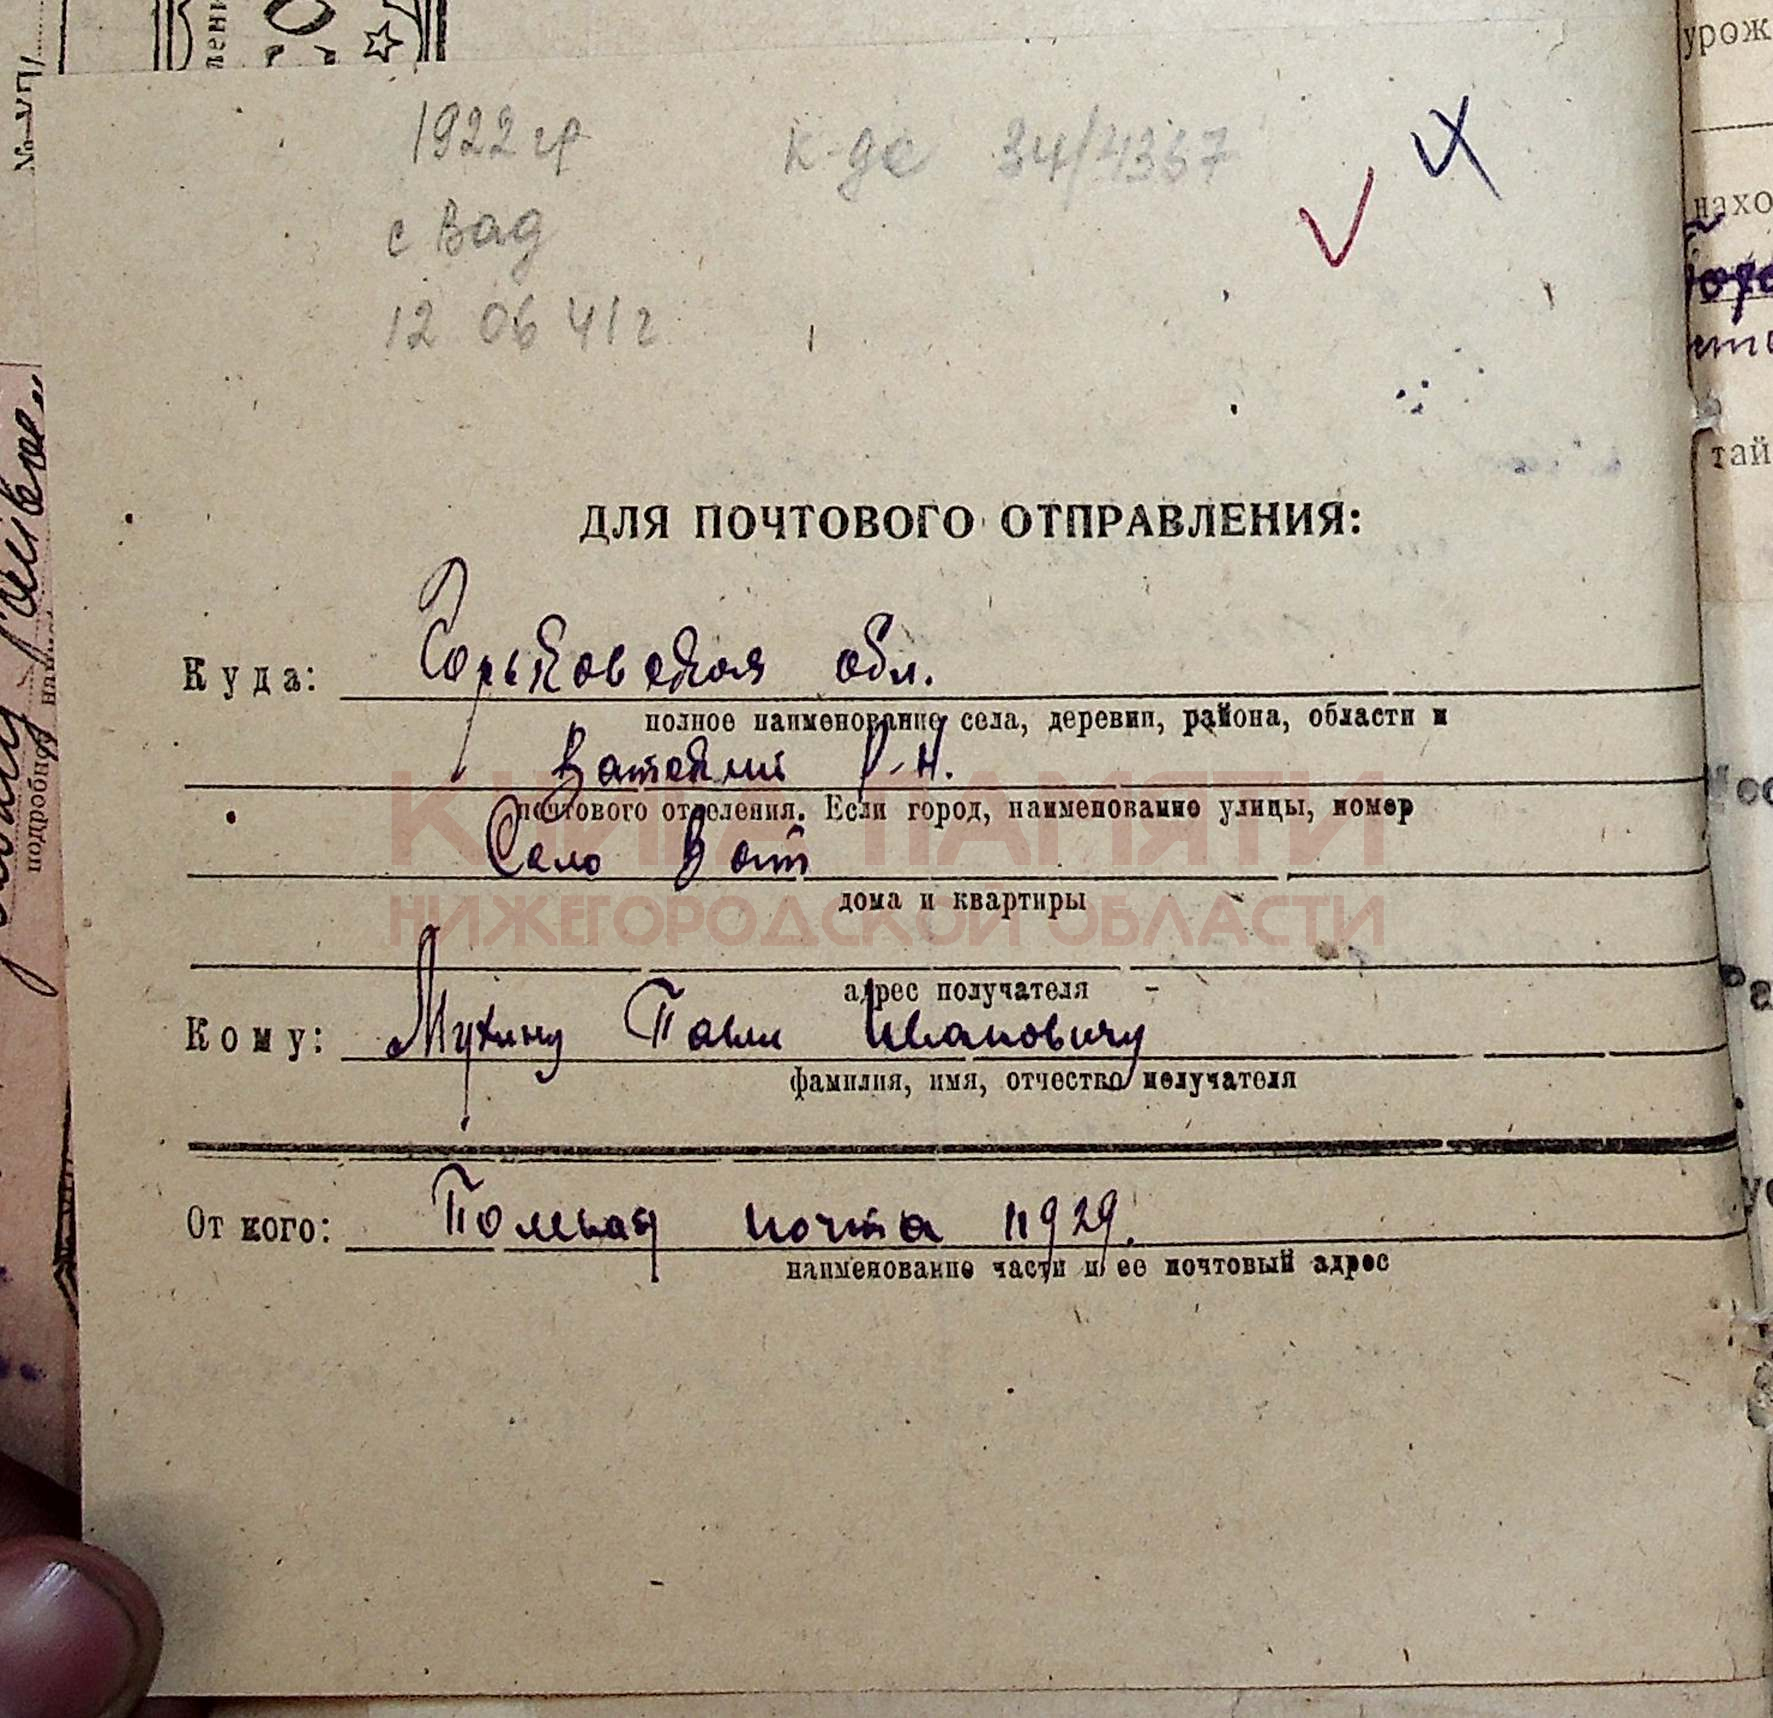 1922 гр к-де 34/4367
с Вад
12 06 41 г
ДЛЯ ПОЧТОВОГО ОТПРАВЛЕНИЯ:
Куда: Горьковская обл.
полное наименование села, деревни, района, области и
Ватский Р-Н.
почтового отделения. Если город, наименование улицы, номер
Село Ват
дома и квартиры
КНИГА ПАМЯТИ
НИЖЕГОРОДСКОЙ ОБЛАСТИ
адрес получателя
Кому: Мухину Павли Ивановичу
фамилия, имя, отчество получателя
От кого: Полевая почта 11929.
наименование части и ее почтовый адрес
урож
нахо
тай
подробн